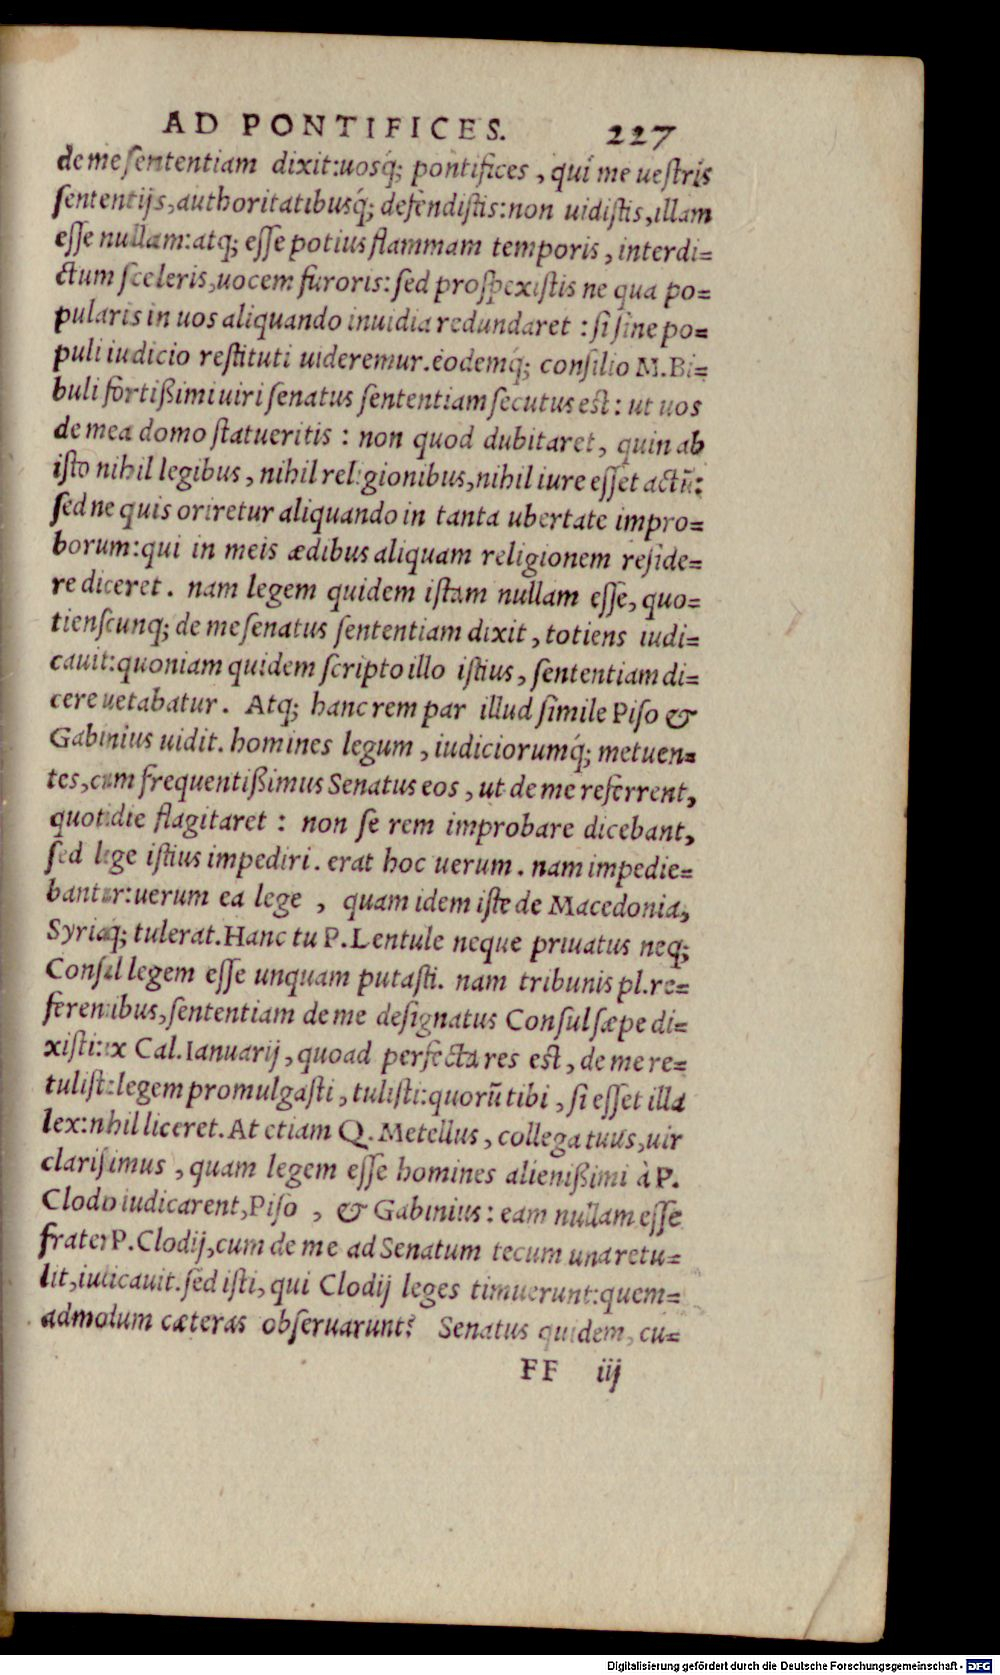 AD PONTIFICES. 227
de me ſententiam dixit:uosq́; pontifices, qui me ueſtris
ſententijs, authoritatibusq́; defendiſtis: non uidiſtis, illam
eſſe nullam: atq; eſſe potius flammam temporis, interdi=
ctum ſceleris, uocem furoris: ſed proſpexiſtis ne qua po=
pularis in uos aliquando inuidia redundaret: ſi ſine po=
puli iudicio reſtituti uideremur. eodemq́; conſilio M. Bi=
buli fortißimi uiri ſenatus ſententiam ſecutus eſt: ut uos
de mea domo ſtatueritis: non quod dubitaret, quin ab
iſto nihil legibus, nihil religionibus, nihil iure eſſet actū:
ſed ne quis oriretur aliquando in tanta ubertate impro=
borum: qui in meis ædibus aliquam religionem reſide=
re diceret. nam legem quidem iſtam nullam eſſe, quo=
tienſcunq; de me ſenatus ſententiam dixit, totiens iudi=
cauit: quoniam quidem ſcripto illo iſtius, ſententiam di=
cere uetabatur. Atq; hanc rem par illud ſimile Piſo &
Gabinius uidit. homines legum, iudiciorumq́; metuen=
tes, cum frequentißimus Senatus eos, ut de me referrent,
quotidie flagitaret: non ſe rem improbare dicebant,
ſed lege iſtius impediri. erat hoc uerum. nam impedie=
bantur: uerum ea lege, quam idem iſte de Macedonia,
Syriaq; tulerat. Hanc tu P. Lentule neque priuatus neq;
Conſul legem eſſe unquam putaſti. nam tribunis pl. re=
ferentibus, ſententiam de me deſignatus Conſul ſæpe di=
xiſti: ex Cal. Ianuarij, quoad perfecta res eſt, de me re=
tuliſti: legem promulgaſti, tuliſti: quorū tibi, ſi eſſet illa
lex: nihil liceret. At etiam Q. Metellus, collega tuus, uir
clariſsimus, quam legem eſſe homines alienißimi à P.
Clodio iudicarent, Piſo, & Gabinius: eam nullam eſſe
frater P. Clodij, cum de me ad Senatum tecum una retu=
lit, iudicauit. ſed iſti, qui Clodij leges timuerunt: quem=
admodum cæteras obſeruarunt? Senatus quidem, cu=
FF iij
Digitalisierung gefördert durch die Deutsche Forschungsgemeinschaft - DFG